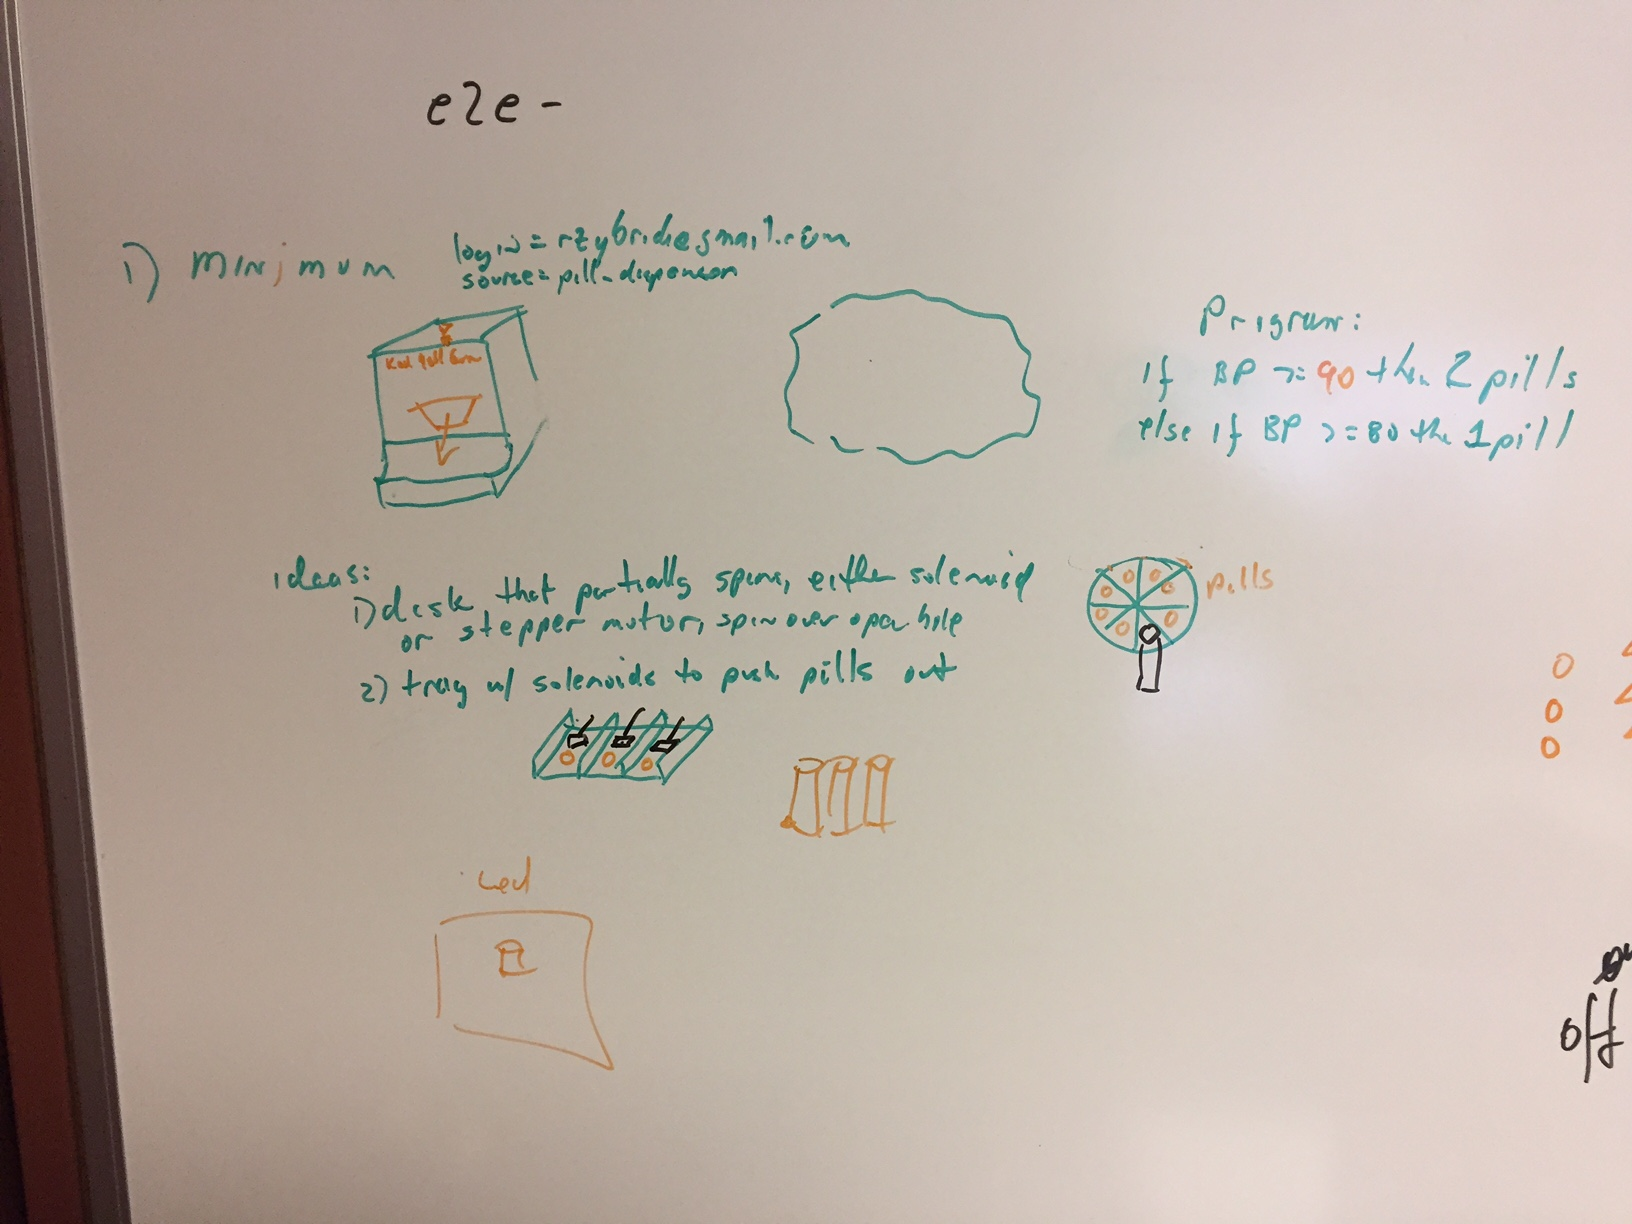 e2e -
1) minimum
login = rzybridie@gmail.com
source = pill-dispenser
Program:
If BP >= 90 then 2 pills
else if BP >= 80 the 1 pill
ideas:
1) disk, that partially spins, either solenoid
or stepper motor, spin over open hole
pills
2) tray w/ solenoids to push pills out
Led
off